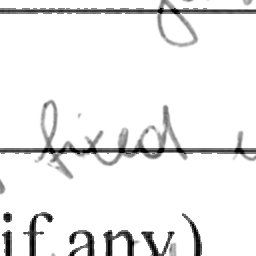 fixed
if any)